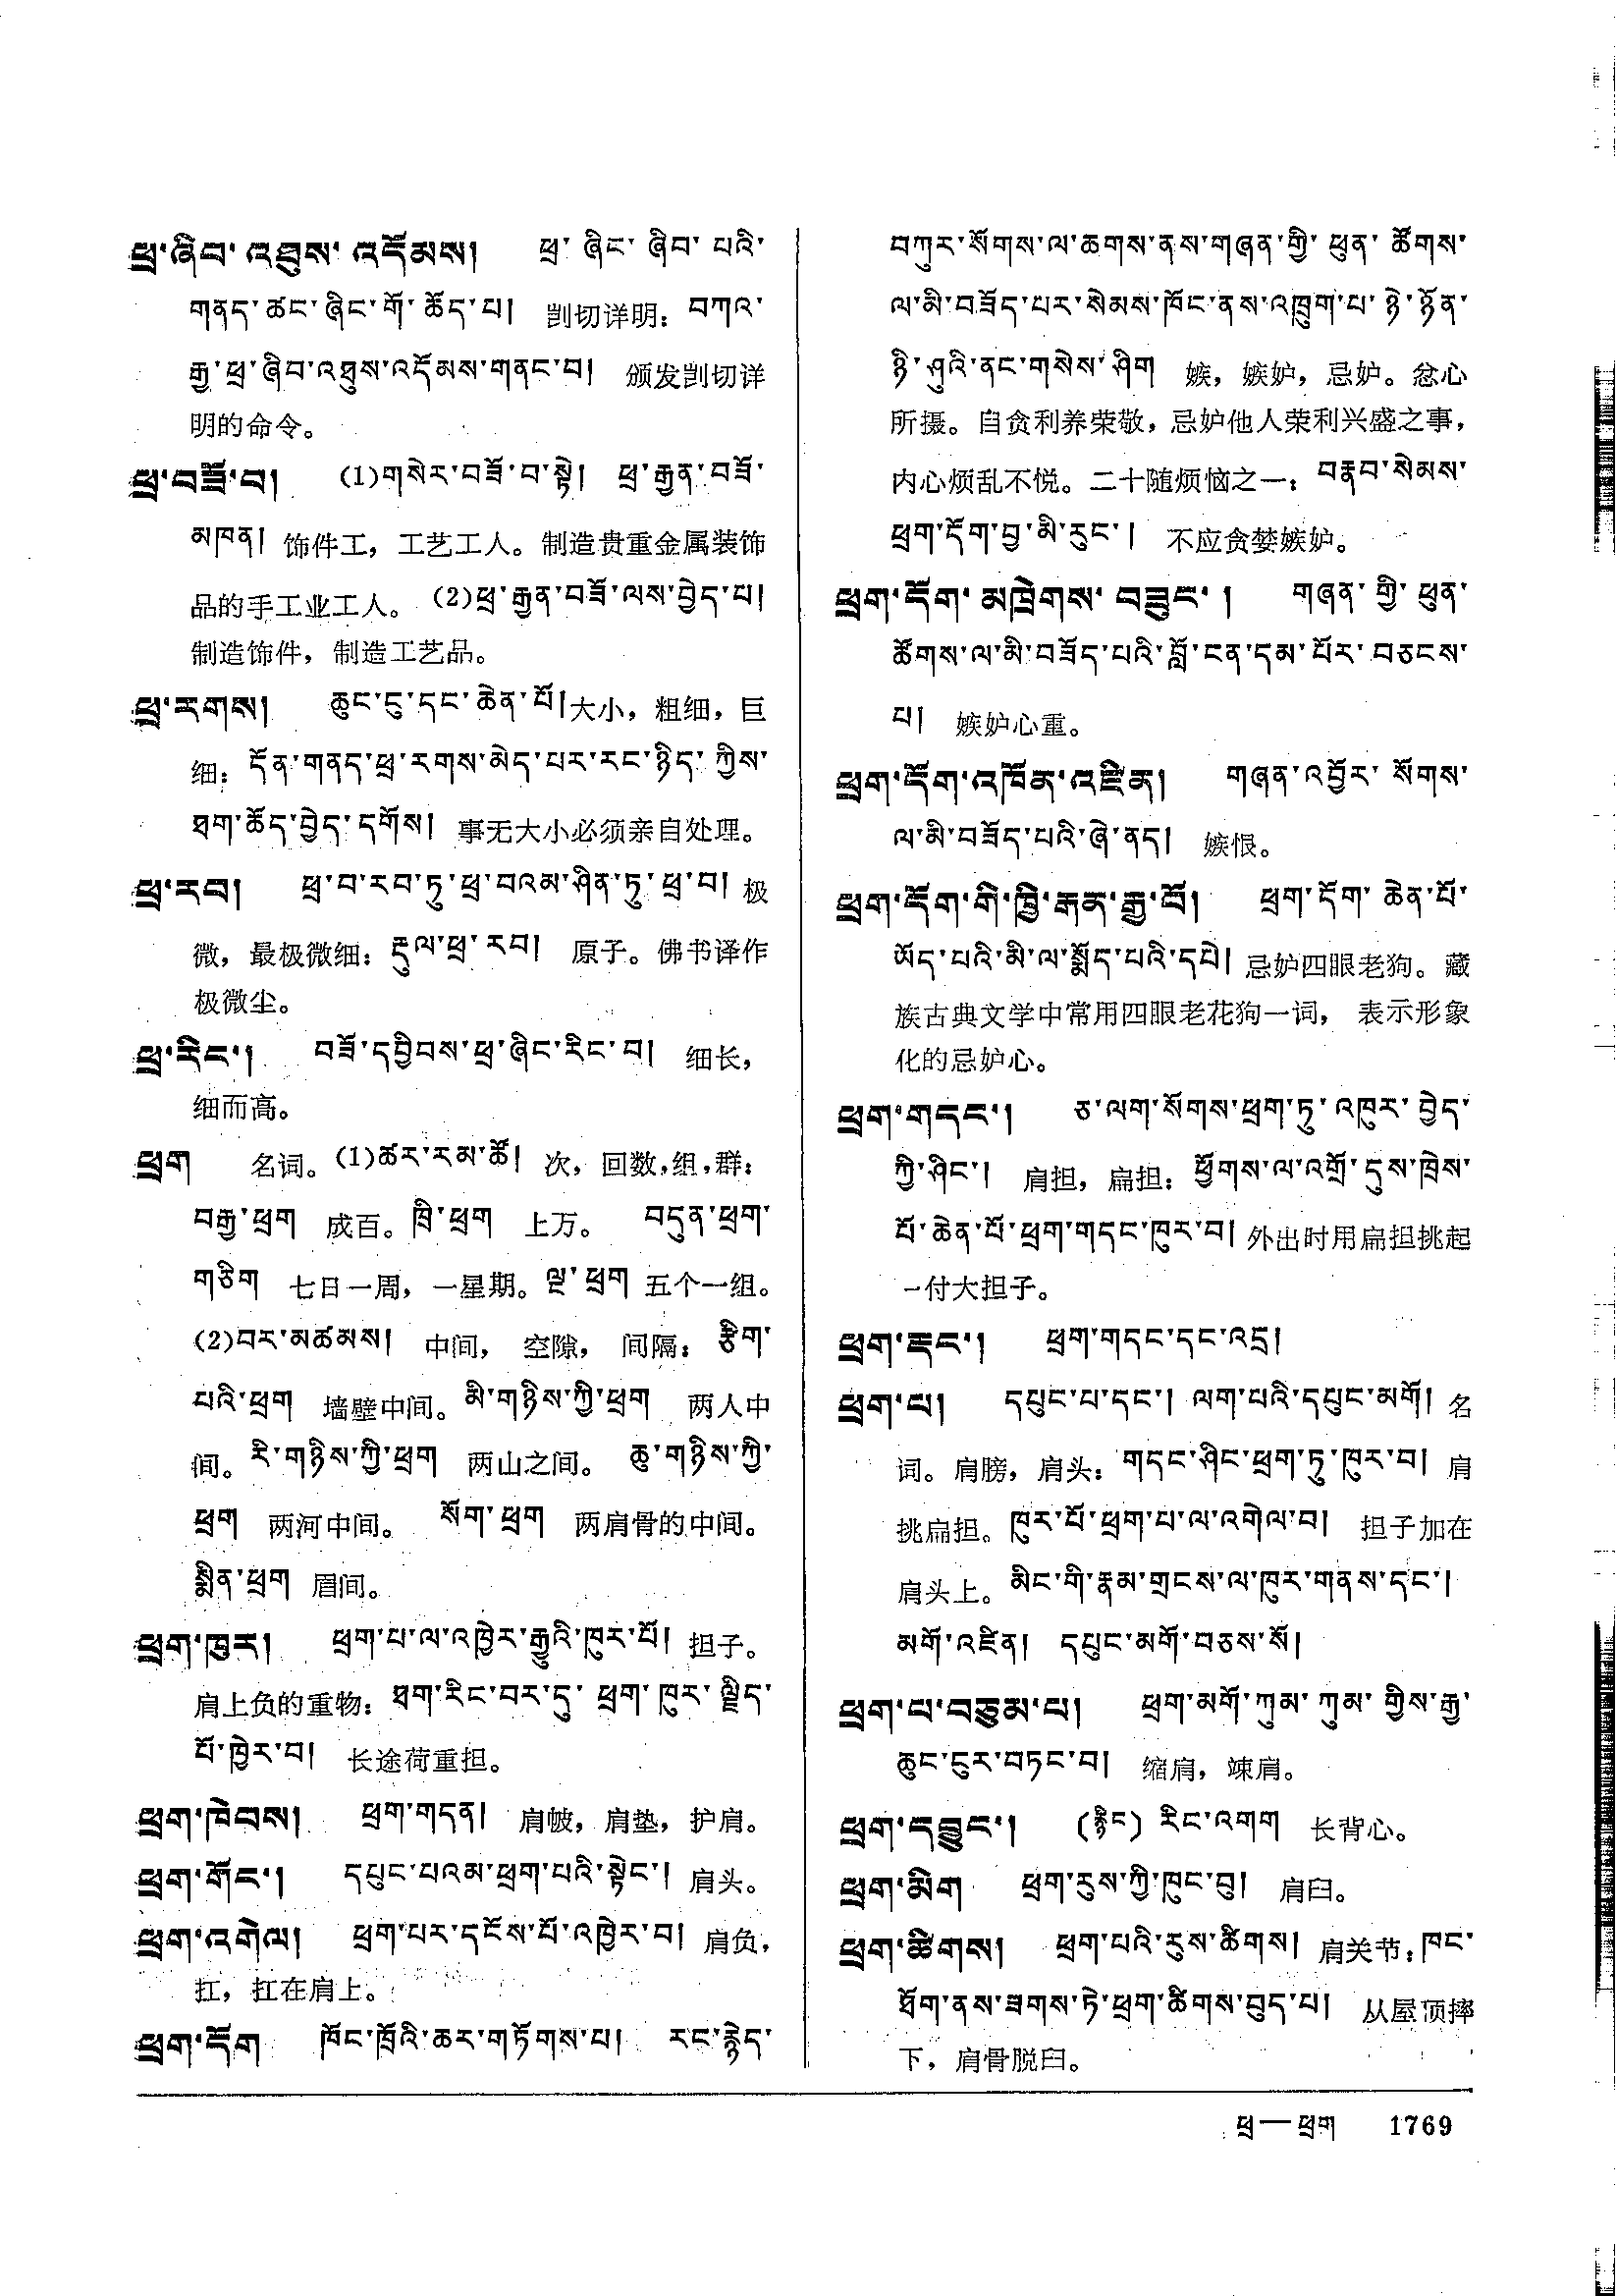 ཕྲ་ཞིབ་འཐུས་འདོམས། ཕྲ་ཞིང་ཞིབ་པའི་
གནད་ཚང་ཞིང་གོ་ཆོད་པ། 剀切详明：བཀའ་
རྒྱ་ཕྲ་ཞིབ་འཐུས་འདོམས་གནང་བ། 颁发剀切详
明的命令。
ཕྲ་བཟོ་བ། (1)གསེར་བཟོ་བ་སྟེ། ཕྲ་རྒྱན་བཟོ་
མཁན། 饰件工，工艺工人。制造贵重金属装饰
品的手工业工人。(2)ཕྲ་རྒྱན་བཟོ་ལས་བྱེད་པ།
制造饰件，制造工艺品。
ཕྲ་རགས། ཆུང་ངུ་དང་ཆེན་པོ། 大小，粗细，巨
细：དོན་གནད་ཕྲ་རགས་མེད་པར་རང་ཉིད་ཀྱིས་
ཐག་ཆོད་བྱེད་དགོས། 事无大小必须亲自处理。
ཕྲ་རབ། ཕྲ་བ་རབ་ཏུ་ཕྲ་བའམ་ཤིན་ཏུ་ཕྲ་བ། 极
微，最极微细：རྡུལ་ཕྲ་རབ། 原子。佛书译作
极微尘。
ཕྲ་རིང་། བཟོ་དབྱིབས་ཕྲ་ཞིང་རིང་བ། 细长，
细而高。
ཕྲག 名词。(1)ཚར་རམ་ཚོ། 次，回数，组，群：
བརྒྱ་ཕྲག 成百。ཁྲི་ཕྲག 上万。 བདུན་ཕྲག་
གཅིག 七日一周，一星期。ལྔ་ཕྲག 五个一组。
(2)བར་མཚམས། 中间，空隙，间隔：རྩིག་
པའི་ཕྲག 墙壁中间。མི་གཉིས་ཀྱི་ཕྲག 两人中
间。རི་གཉིས་ཀྱི་ཕྲག 两山之间。 ཆུ་གཉིས་ཀྱི་
ཕྲག 两河中间。 སོག་ཕྲག 两肩骨的中间。
སྨིན་ཕྲག 眉间。
ཕྲག་ཁུར། ཕྲག་པ་ལ་འཁྱེར་རྒྱུའི་ཁུར་པོ། 担子。
肩上负的重物：ཐག་རིང་བར་དུ་ཕྲག་ཁུར་ལྗིད་
པོ་ཁྱེར་བ། 长途荷重担。
ཕྲག་ཁེབས། ཕྲག་གདན། 肩帔，肩垫，护肩。
ཕྲག་གོང་། དཔུང་པའམ་ཕྲག་པའི་སྟེང་། 肩头。
ཕྲག་འགེལ། ཕྲག་པར་དངོས་པོ་འཁྱེར་བ། 肩负，
扛，扛在肩上。
ཕྲག་དོག ཁོང་ཁྲོའི་ཆར་གཏོགས་པ། རང་རྙེད་
བཀུར་སོགས་ལ་ཆགས་ནས་གཞན་གྱི་ཕུན་ཚོགས་
ལ་མི་བཟོད་པར་སེམས་ཁོང་ནས་འཁྲུག་པ་ཉེ་ཉོན་
ཉི་ཤུའི་ནང་གསེས་ཤིག 嫉，嫉妒，忌妒。忿心
所摄。自贪利养荣敬，忌妒他人荣利兴盛之事，
内心烦乱不悦。二十随烦恼之一：བརྣབ་སེམས་
ཕྲག་དོག་བྱ་མི་རུང་། 不应贪婪嫉妒。
ཕྲག་དོག་མཁྲེགས་བཟུང་། གཞན་གྱི་ཕུན་
ཚོགས་ལ་མི་བཟོད་པའི་བློ་ངན་དམ་པོར་བཅངས་
པ། 嫉妒心重。
ཕྲག་དོག་འཁོན་འཛིན། གཞན་འབྱོར་སོགས་
ལ་མི་བཟོད་པའི་ཞེ་ནད། 嫉恨。
ཕྲག་དོག་གི་ཁྱི་རྒན་རྒྱ་བོ། ཕྲག་དོག་ཆེན་པོ་
ཡོད་པའི་མི་ལ་སྨོད་པའི་དཔེ། 忌妒四眼老狗。藏
族古典文学中常用四眼老花狗一词，表示形象
化的忌妒心。
ཕྲག་གདང་། ཅ་ལག་སོགས་ཕྲག་ཏུ་འཁུར་བྱེད་
ཀྱི་ཤིང་། 肩担，扁担：ཕྱོགས་ལ་འགྲོ་དུས་ཁྲེས་
པོ་ཆེན་པོ་ཕྲག་གདང་ཁུར་བ། 外出时用扁担挑起
一付大担子。
ཕྲག་རྡང་། ཕྲག་གདང་དང་འདྲ།
ཕྲག་པ། དཔུང་པ་དང་། ལག་པའི་དཔུང་མགོ། 名
词。肩膀，肩头：གདང་ཤིང་ཕྲག་ཏུ་ཁུར་བ། 肩
挑扁担。ཁུར་པོ་ཕྲག་པ་ལ་འགེལ་བ། 担子加在
肩头上。མིང་གི་རྣམ་གྲངས་ལ་ཁུར་གནས་དང་།
མགོ་འཛིན། དཔུང་མགོ་བཅས་སོ།
ཕྲག་པ་བཅུམ་པ། ཕྲག་མགོ་ཀུམ་ཀུམ་གྱིས་རྒྱ་
ཆུང་ངུར་བཏང་བ། 缩肩，竦肩。
ཕྲག་དབྱུང་། (རྙིང) རིང་འགག 长背心。
ཕྲག་མིག ཕྲག་རུས་ཀྱི་ཁུང་བུ། 肩臼。
ཕྲག་ཚིགས། ཕྲག་པའི་རུས་ཚིགས། 肩关节：ཁང་
ཐོག་ནས་ཟགས་ཏེ་ཕྲག་ཚིགས་བུད་པ། 从屋顶摔
下，肩骨脱臼。
ཕྲ—ཕྲག 1769